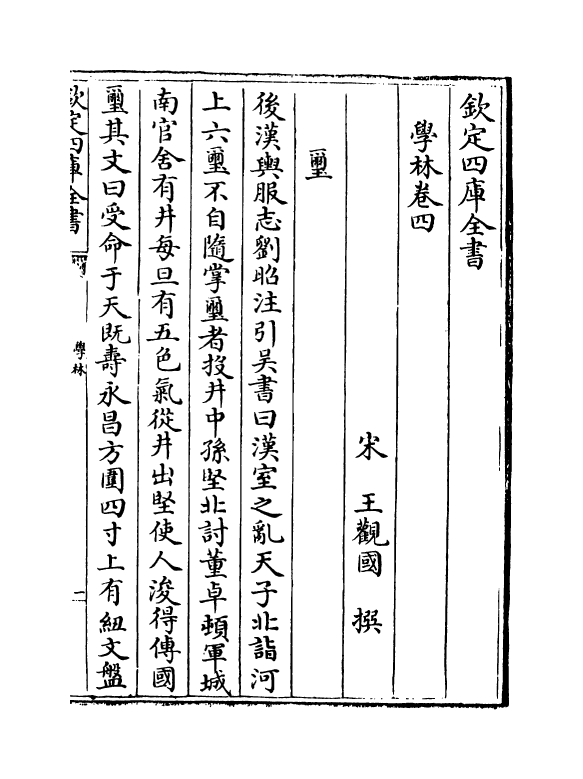 欽定四庫全書
學林卷四
宋 王觀國 撰
璽
後漢輿服志劉昭注引吳書曰漢室之亂天子北詣河
上六璽不自隨掌璽者投井中孫堅北討董卓頓軍城
南官舍有井每旦有五色氣從井出堅使人浚得傳國
璽其文曰受命于天既壽永昌方圍四寸上有紐文盤
欽定四庫全書
學林